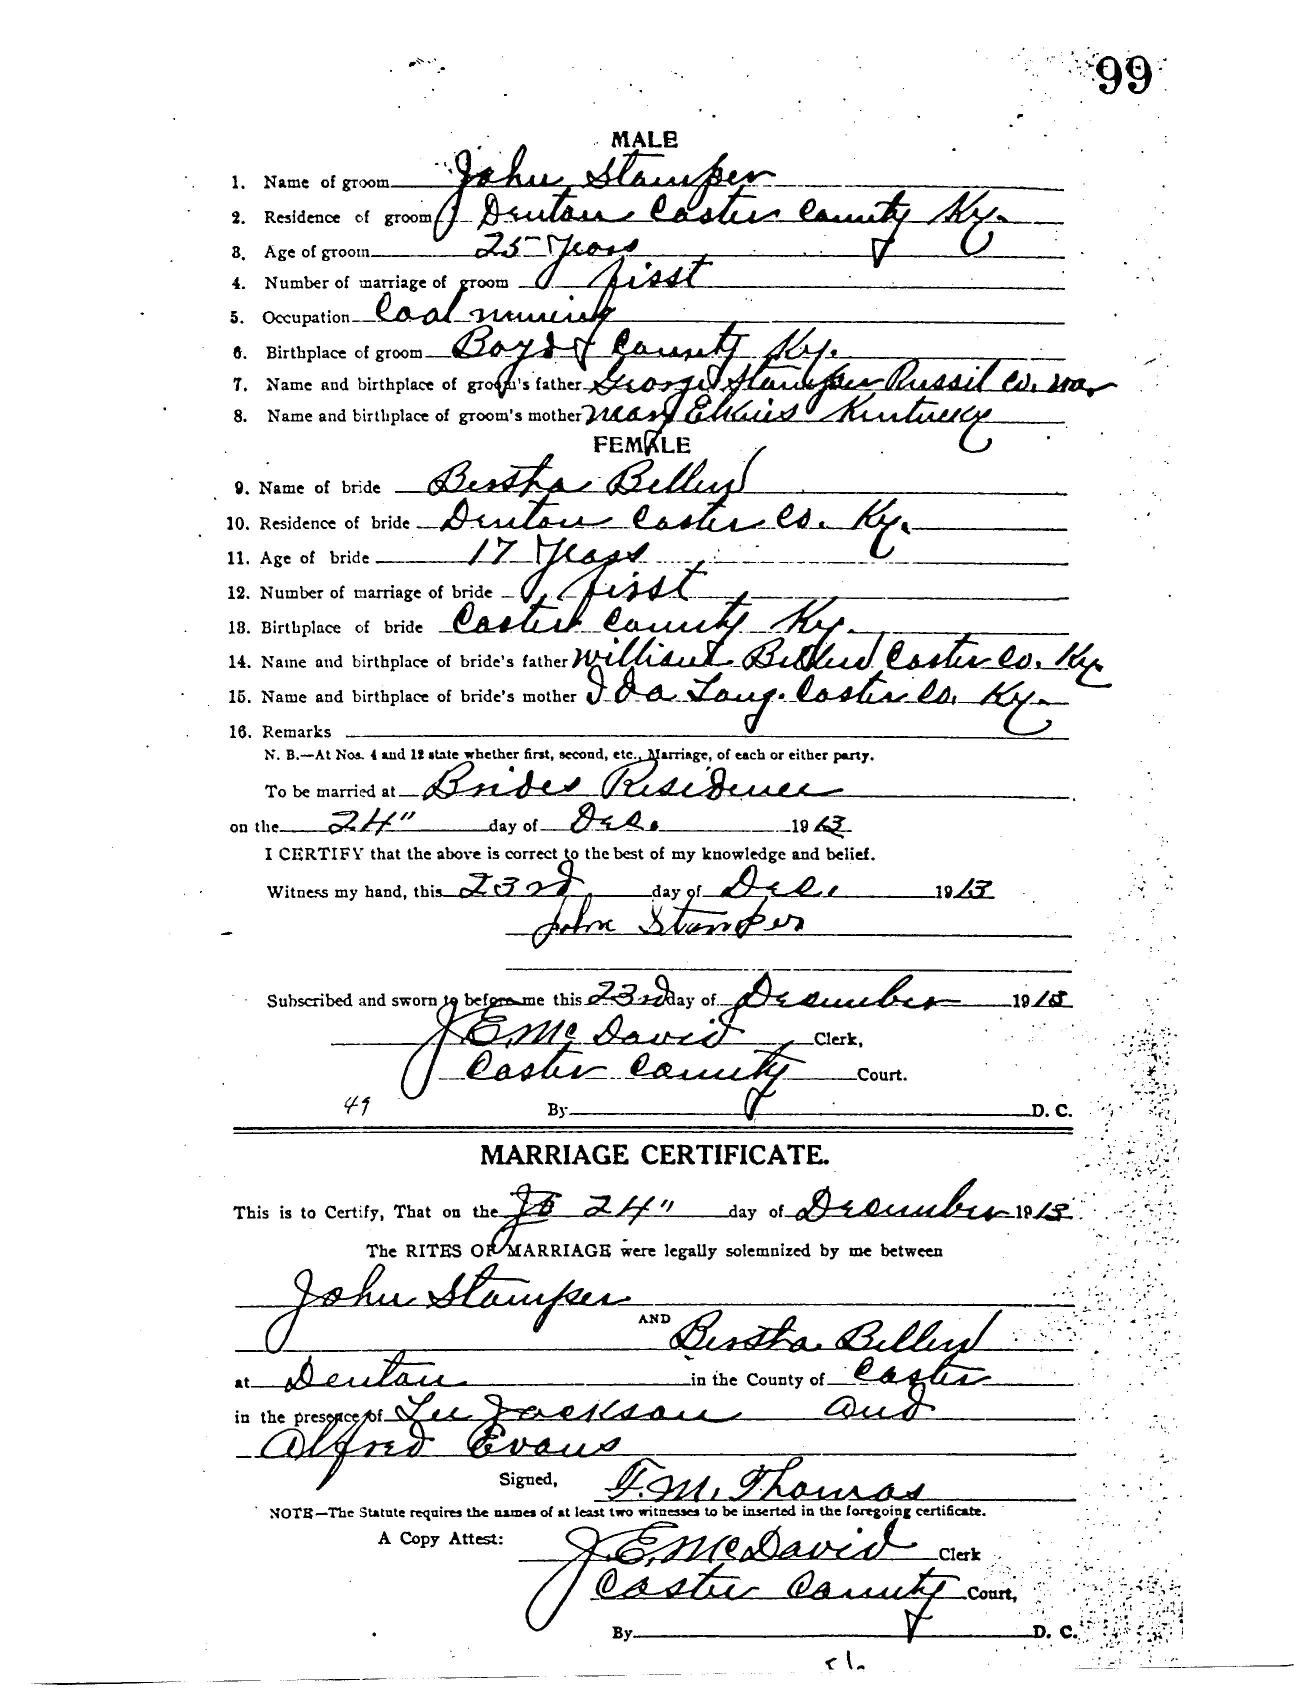 99
MALE
1. Name of groom John Stamper
2. Residence of groom Denton Carter County Ky.
3. Age of groom 25 Years
4. Number of marriage of groom first
5. Occupation Coal mining
6. Birthplace of groom Boyd County Ky.
7. Name and birthplace of groom's father George Stamper Russil Co. Va.
8. Name and birthplace of groom's mother Mary Elkins Kentucky
FEMALE
9. Name of bride Bertha Bellew
10. Residence of bride Denton Carter Co. Ky.
11. Age of bride 17 Years
12. Number of marriage of bride first
13. Birthplace of bride Carter County Ky.
14. Name and birthplace of bride's father William Bellew Carter Co. Ky
15. Name and birthplace of bride's mother Ida Long. Carter Co. Ky.
16. Remarks
N. B.—At Nos. 4 and 12 state whether first, second, etc., Marriage, of each or either party.
To be married at Brides Residence
on the 24" day of Dec. 1913
I CERTIFY that the above is correct to the best of my knowledge and belief.
Witness my hand, this 23rd day of Dec. 1913
John Stamper
Subscribed and sworn to before me this 23rd day of December 1913
J. E. McDavid Clerk,
Carter County Court.
49 By D. C.
MARRIAGE CERTIFICATE.
This is to Certify, That on the 24" day of December 1913
The RITES OF MARRIAGE were legally solemnized by me between
John Stamper
AND Bertha Bellew
at Denton in the County of Carter
in the presence of Lee Jackson and
Alfred Evans
Signed, F. M. Thomas
NOTE—The Statute requires the names of at least two witnesses to be inserted in the foregoing certificate.
A Copy Attest: J. E. McDavid Clerk
Carter County Court,
By D. C.